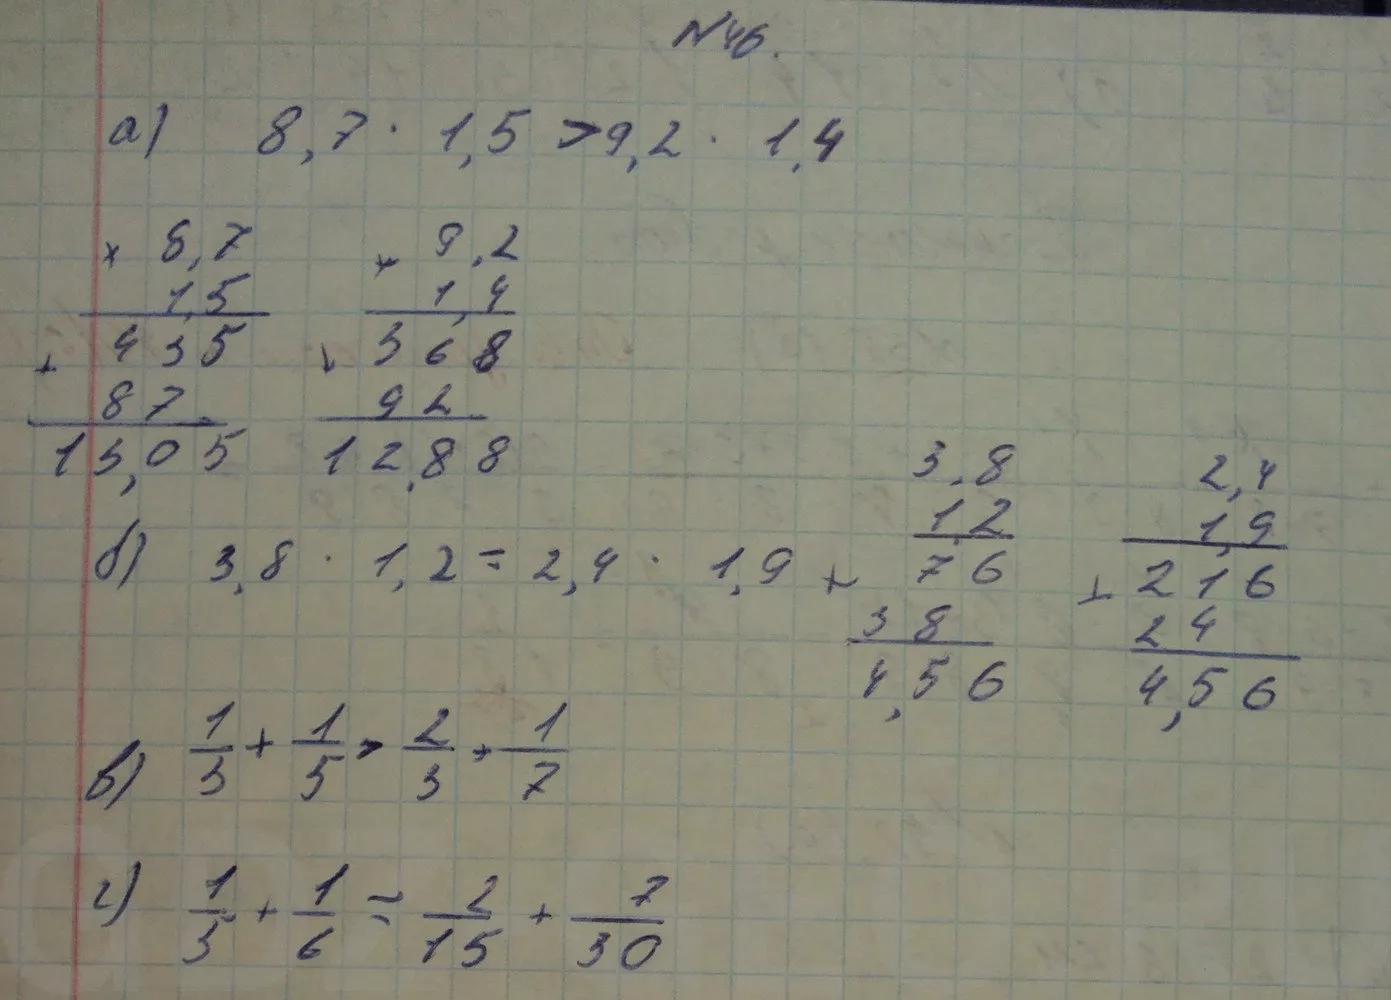 №46.
а) 8,7 · 1,5 > 9,2 · 1,4
× 8,7
1,5
435
+ 87
13,05
× 9,2
1,4
368
+ 92
12,88
б) 3,8 · 1,2 = 2,4 · 1,9
3,8
1,2
76
+ 38
4,56
2,4
1,9
216
+ 24
4,56
в) 1/3 + 1/5 > 2/3 + 1/7
г) 1/5 + 1/6 = 2/15 + 7/30